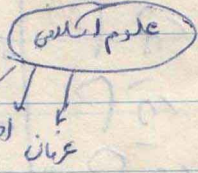 علوم اسلامی
عرفان